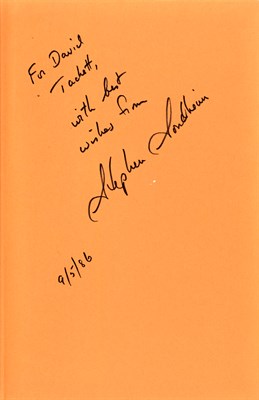 For David
Tackett,
with best
wishes from
Stephen Sondheim
9/5/86